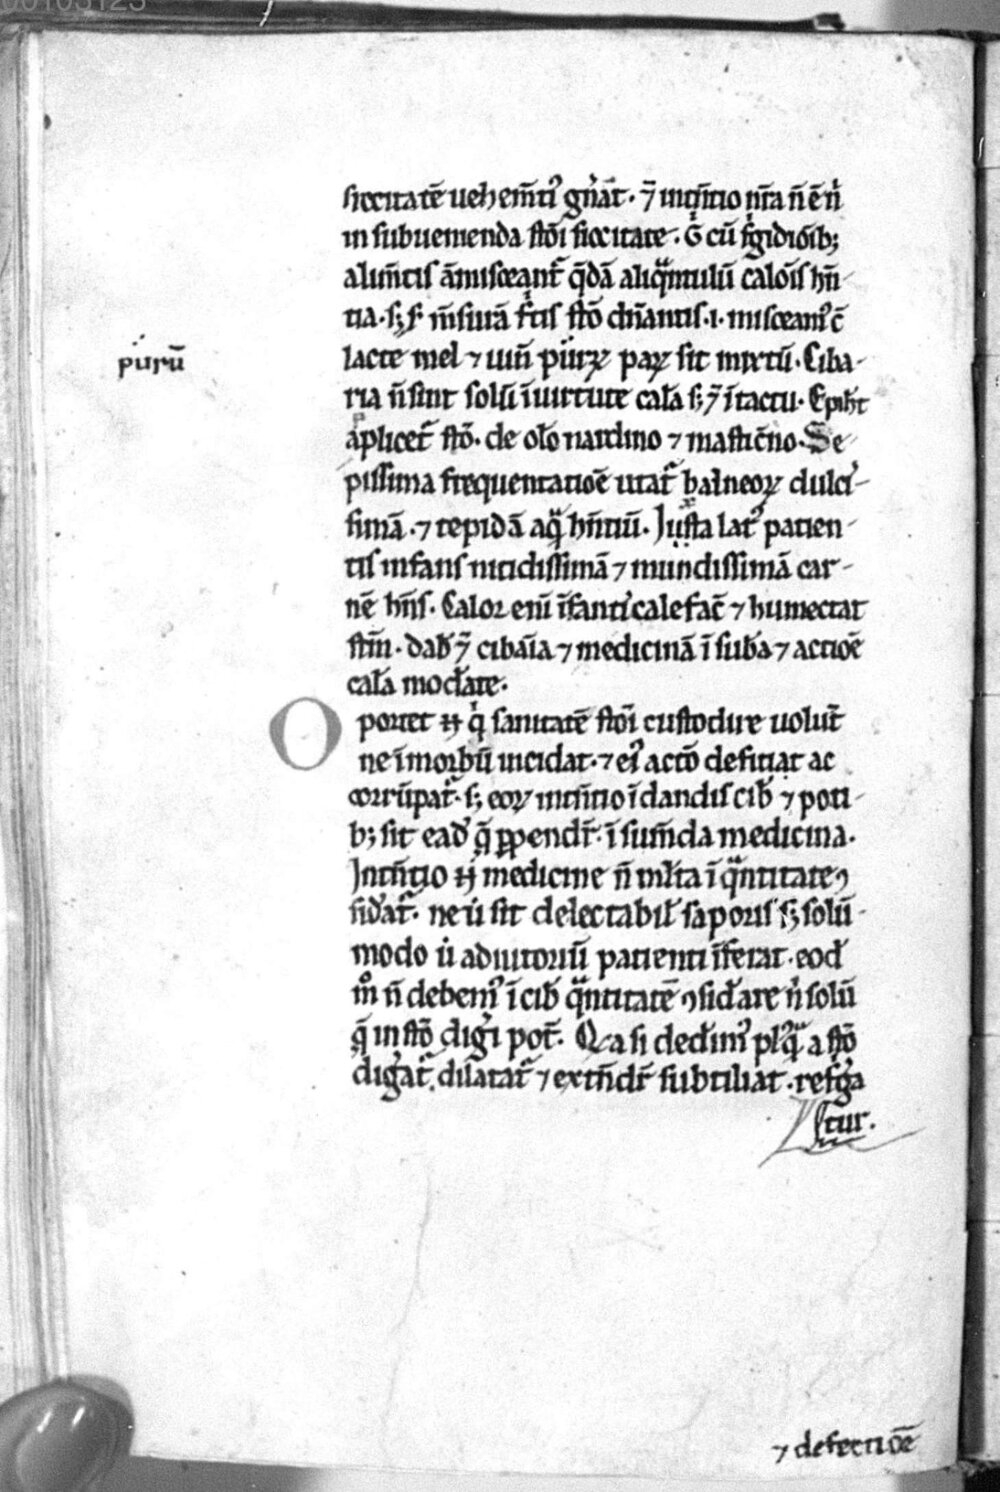 00103123
siccitatē uehem̄tiꝰ gn̄at. ⁊̄ int̄n̄tio nr̄a n̄ ē n̄
in subuenienda sto͞i siccitate. G̊ cū frigidiōib;
alim̄tis āmisceant᷑ q̄dā aliqᷓntulū calo͞is hn̄
tia. s; f᷑ m̄surā f᷑tis stō dn̄antis .i. misceamꝰ c̄
lacte mel ⁊ uin̄ purꝝ paꝝ sit mixtū. Ciba-
ria n̄ sint solū ī uirtute cal̄a s; ⁊̄ ī tactu. Epiħt
aplicet᷑ stō. de olo nardino ⁊ masticīno. Se-
pissima frequentatiōe utat᷑ balneoꝝ dulci-
simā. ⁊ tepidā aqᷓ hn̄tiū. Juxta latꝰ patien-
tis infans nitidissimā ⁊ mundissimā car-
nē hn̄s. Calor eni īfanti calefac̄ ⁊ humectat
stm̄. dab̄ ⁊̄ cibāia ⁊ medicinā ī sub̄a ⁊ actiōe
cal̄a mod̄ate.
Oportet ħ qͥ sanitatē sto͞i custodire uolūt
ne ī morbū incidat. ⁊ eiꝰ actō deficiat ac
corrūpat᷑. s; eoꝝ int̄n̄tio ī dandis cib̄ ⁊ poti-
b; sit ead̄ q̄ ꝑpendr̄. ī sum̄da medicina.
Int̄n̄tio ħ medicine n̄ ml̄ta ī qᷓntitate ꝯ
sid̄at᷑. ne u̇ sit delectabil̄ saporis s; solū-
modo u̇ adiutoriū patienti īferat. eod̄
m̊ n̄ debemꝰ ī cib̄ qᷓntitatē ꝯsid̄are n̄ solū
q̄ in stō digi pot᷑. Qa si dedimꝰ plꝰqᷓ a stō
digat᷑. dilatat᷑ ⁊ extn̄dr̄ subtiliat. refga
tur.
purū
⁊ defectiōe